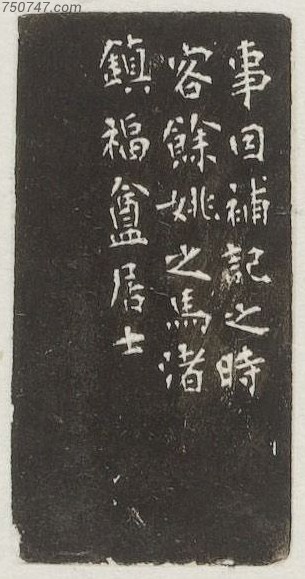 750747.com
事因補記之時
客餘姚之馬渚
鎮福盦居士